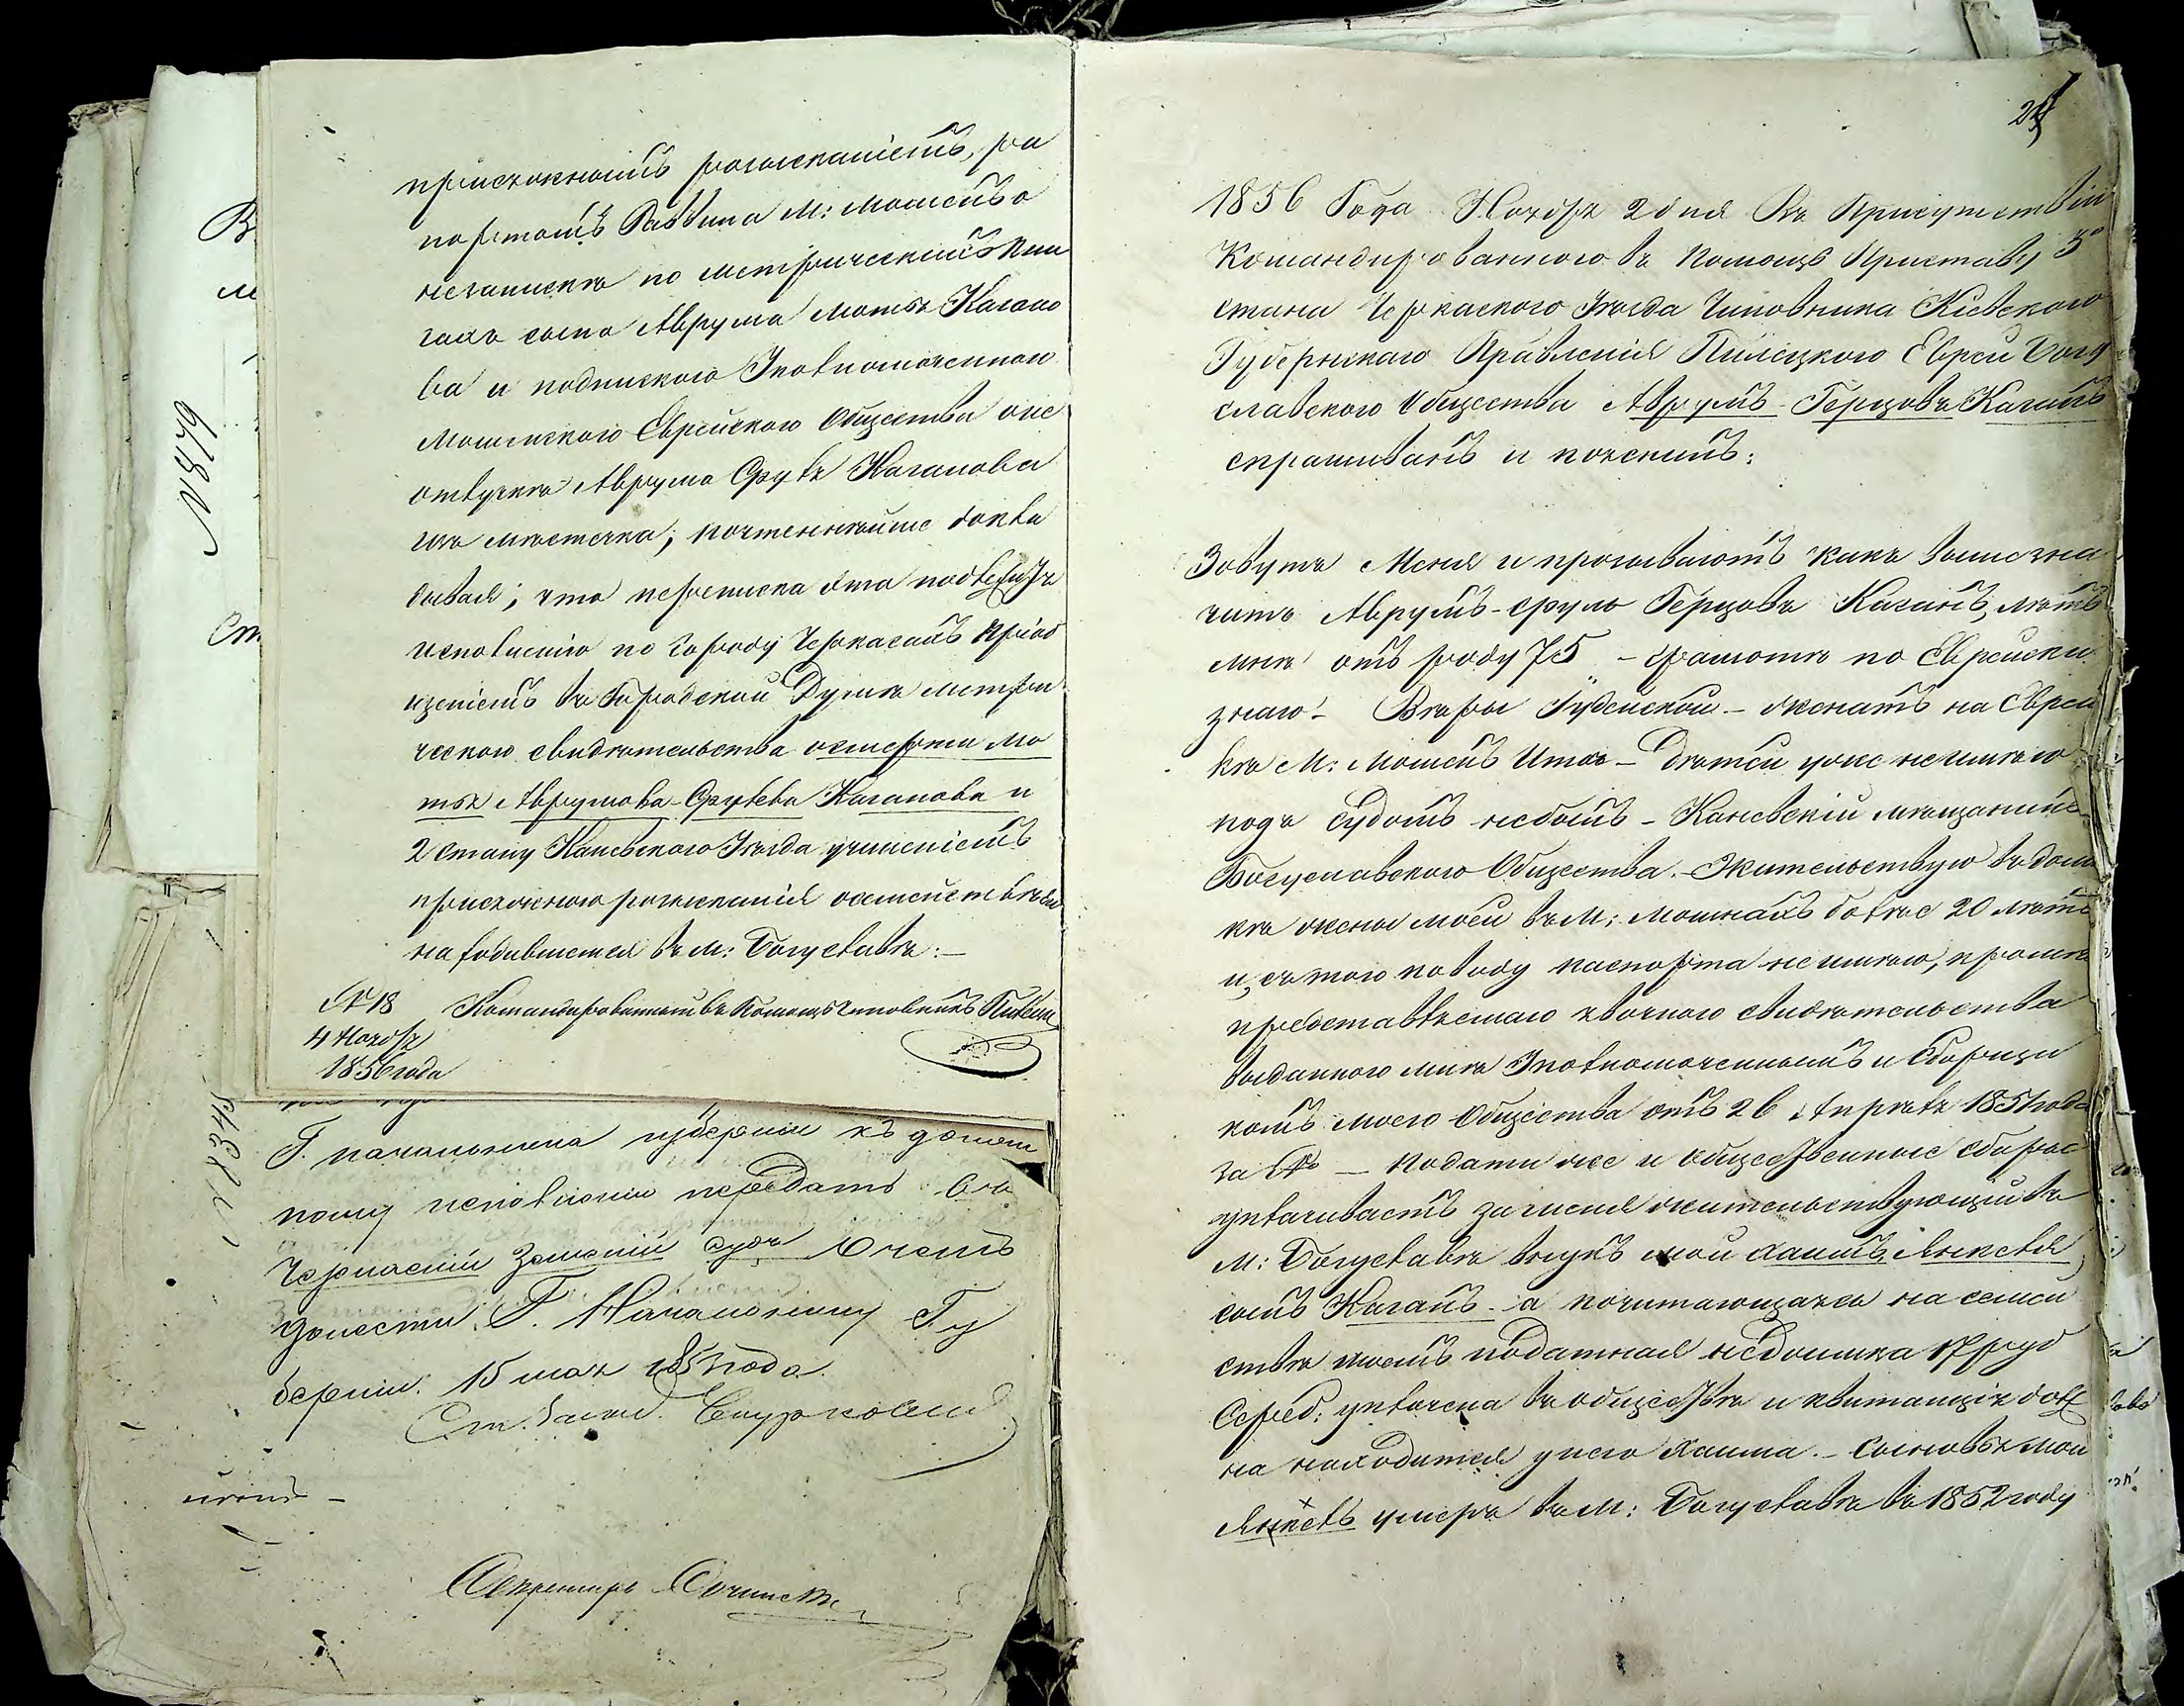 присяжнымъ розысканіемъ, ра
портомъ Раввина М: Мошенъ о
незапискѣ по метрическимъ кни
гамъ сына Аврума Мотя Кагано
ва и подпискою Уполномоченнаго
Мошенскаго Еврейскаго Общества о не
отлучкѣ Аврума Сруля Каганова
изъ мѣстечка; почтеннѣйше докла
дывая; что переписка эта подлежитъ
исполненію по Городу Черкасамъ пріоб
щеніемъ въ Городской Думѣ метри
ческаго свидѣтельства о смерти Мо
тя Аврумова-Срулева Каганова и
2 стану Каневскаго Уѣзда учиненіемъ
присяжнаго розысканія о семействѣ
находившемся въ м: Богуславѣ:—
№ 18 Командированный въ Помощь Чиновникъ
4 Ноября
1856 года
Г. Начальника губерніи къ должн
ному исполненію передать въ
Черкаскій Земскій судъ О чемъ
донести Г. Начальнику Гу
берніи. 15 мая 1853 года.
Секретарь
№ 879
№ 8345
24
1856 Года Ноября 2 дня Въ Присутствіи
Командированнаго въ Помощь Приставу 3º
стана Черкаскаго Уѣзда Чиновника Кіевскаго
Губернскаго Правленія Пилецкаго Еврей Богу
славскаго Общества Аврумъ Герцовъ Каганъ
спрашиванъ и показалъ:
Зовутъ Меня и прозываютъ какъ вышезна
читъ Аврумъ-Сруль Герцовъ Каганъ, лѣтъ
мнѣ отъ роду 75 - грамотѣ по Еврейски
знаю - Вѣры Іудейской - женатъ на Еврей
кѣ М: Мошенъ Итѣ - Дѣтей уже неимѣю
подъ Судомъ небылъ - Каневскій мѣщанинъ
Богуславскаго Общества. - Жительствую въ дом
кѣ жены моей въ М: Мошнахъ болѣе 20 лѣтъ
и, съ того поводу паспорта неимѣю, кромѣ
представляемаго явочнаго свидѣтельства
выданного мнѣ Уполномоченнымъ и Сборщи
комъ моего Общества отъ 26 Апрѣля 1851 года
за № — Подати же и общественные сборы
уплачиваетъ за меня жительствующій въ
М: Богуславѣ внукъ мой Хаимъ Янкеля
сынъ Каганъ - а почитающаяся на семей
ствѣ моемъ податная недоимка 17 руб
Сереб: уплочена въ обществѣ и квитанція долж
на находится у него Хаима. - Сыновья мои
Янкель умеръ въ М: Богуславѣ въ 1852 году